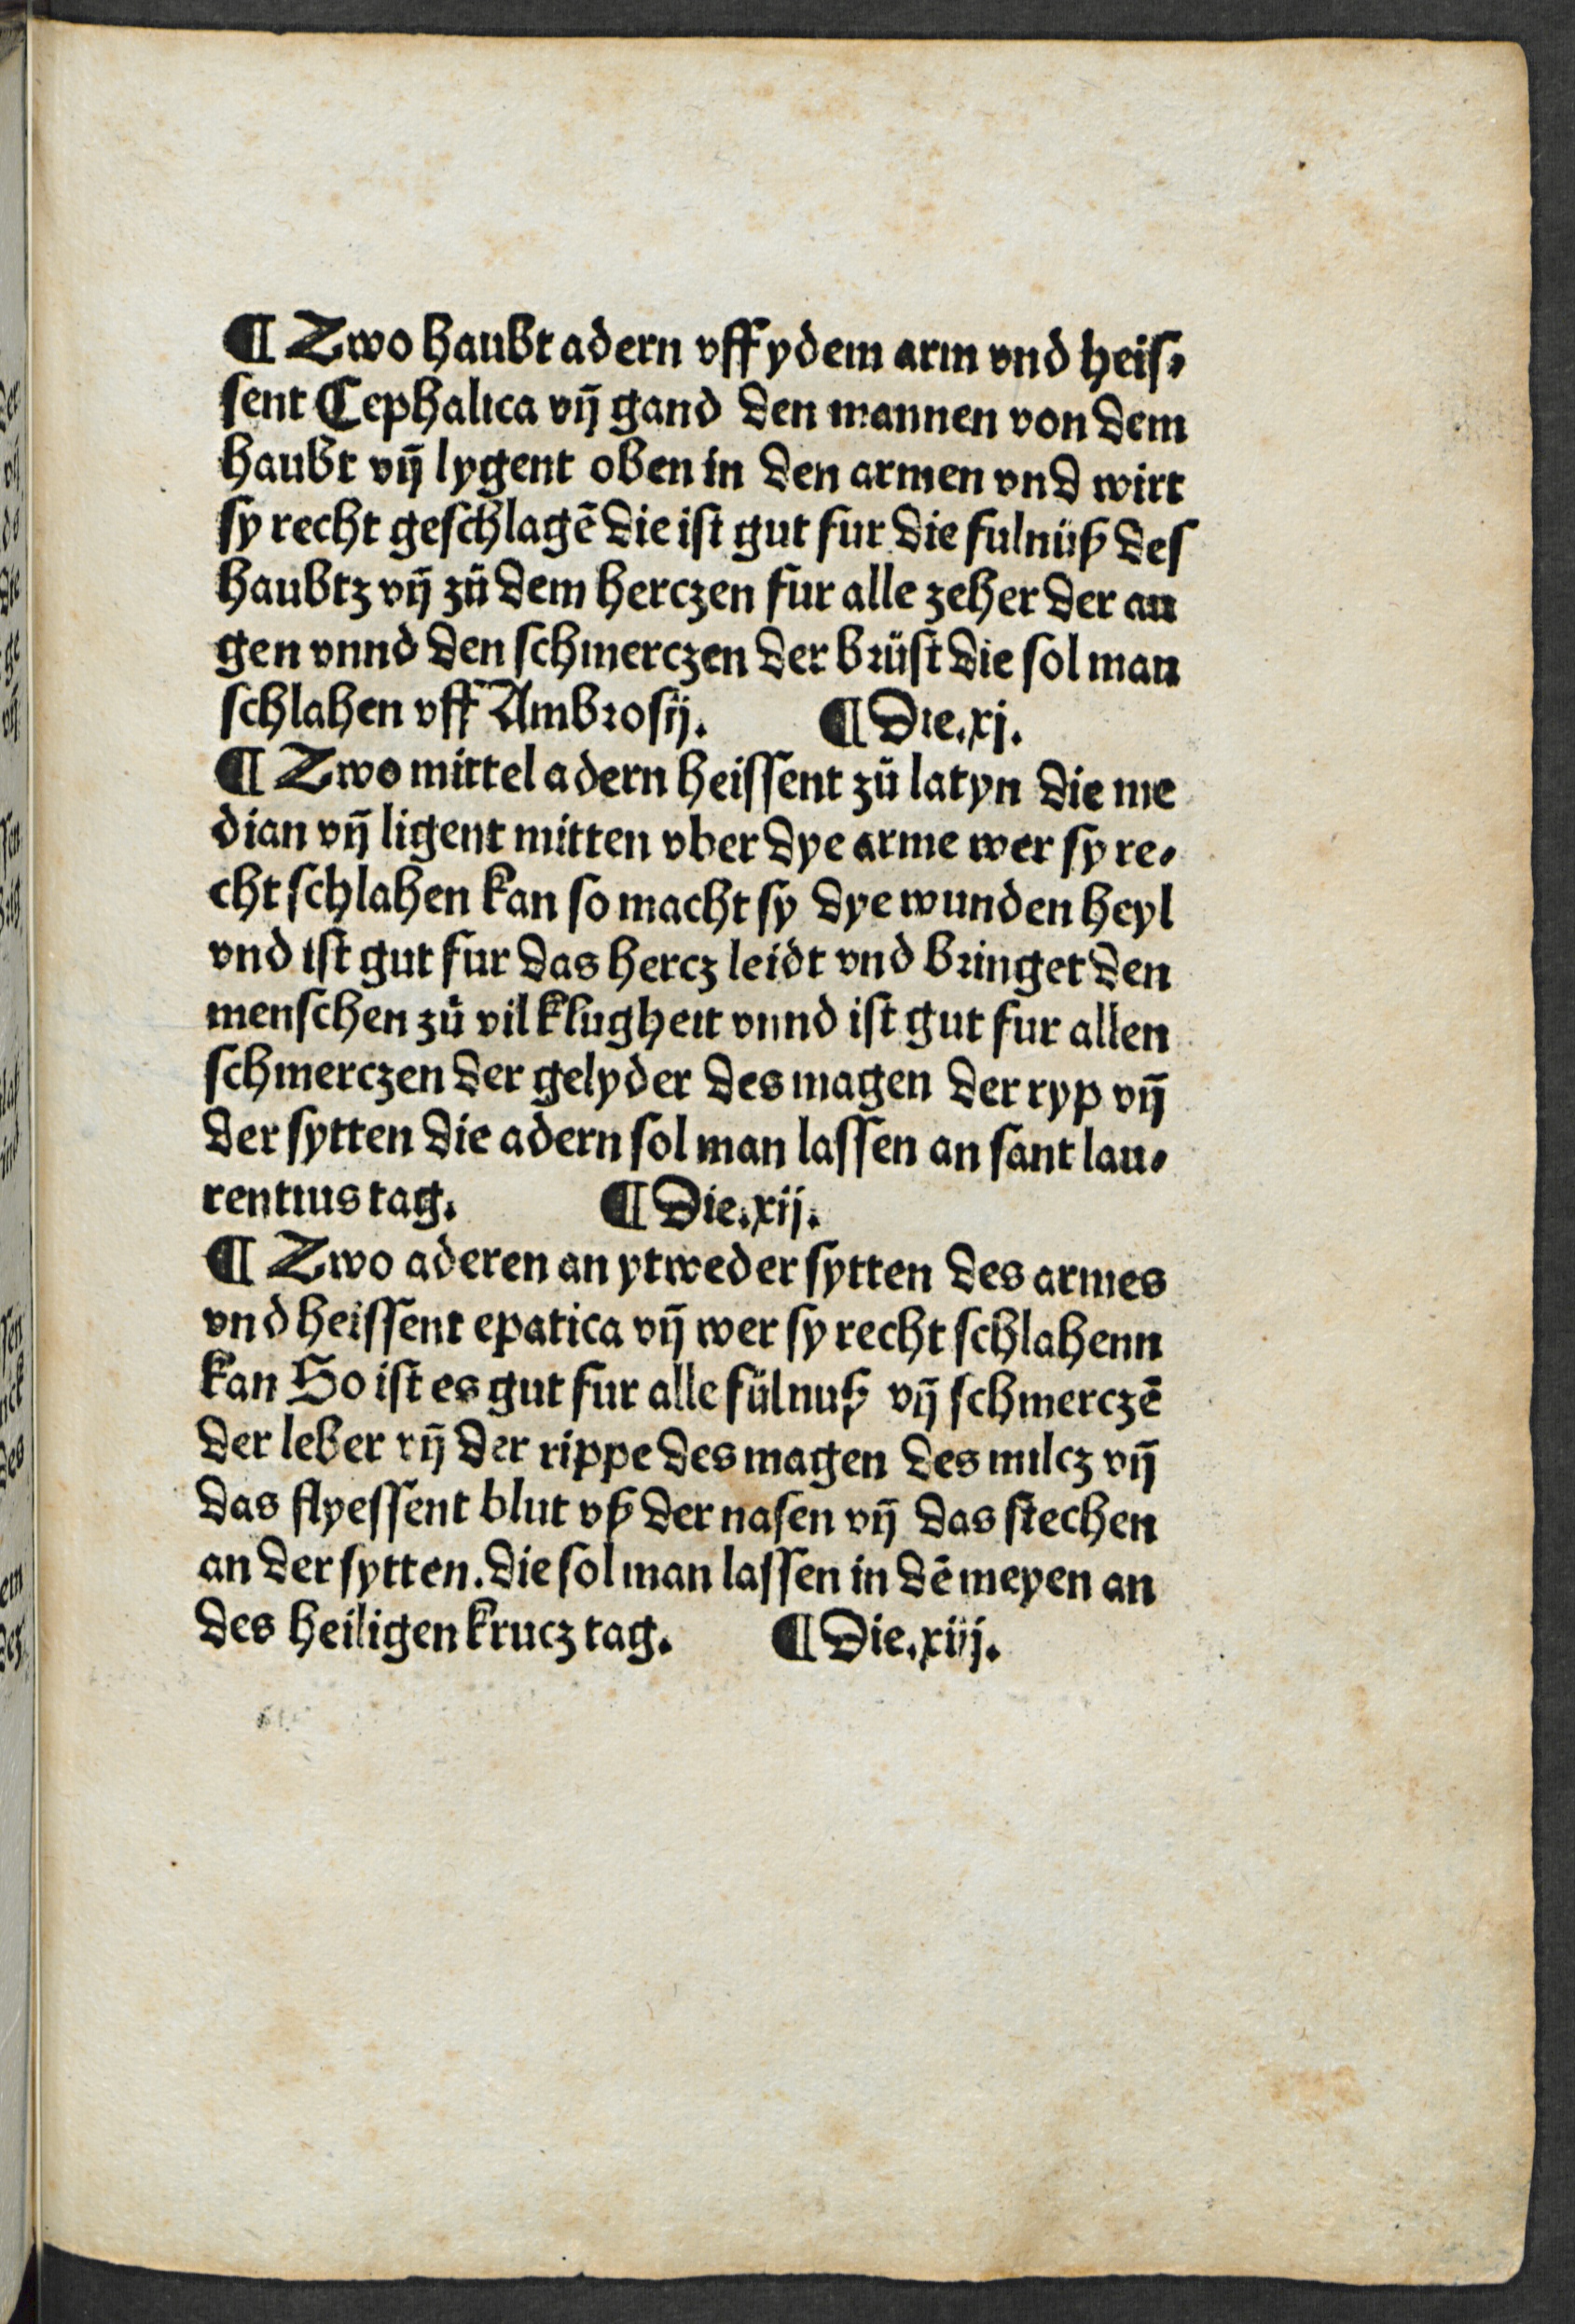 ¶ Zwo haubt adern vff ydem arm vnd heiſ⸗
ſent Cephalica vn̄ gand den mannen von dem
haubt vn̄ lygent oben in den armen vnd wirt
ſy recht geſchlagē die iſt gut fur die fulnüß des
haubtz vn̄ zů dem herczen fur alle zeher der au
gen vnnd den ſchmerczen der brüſt die ſol man
ſchlahen vff Ambroſij. ¶ Die.xj.
¶ Zwo mittel adern heiſſent zů latyn die me
dian vn̄ ligent mitten vber dye arme wer ſy re⸗
cht ſchlahen kan ſo macht ſy dye wunden heyl
vnd iſt gut fur das hercz leidt vnd bringet den
menſchen zů vil klugheit vnnd iſt gut fur allen
ſchmerczen der gelyder des magen der ryp vn̄
der ſytten die adern ſol man laſſen an ſant lau⸗
rentius tag. ¶ Die.xij.
¶ Zwo aderen an ytweder ſytten des armes
vnd heiſſent epatica vn̄ wer ſy recht ſchlahenn
kan So iſt es gut fur alle fülnuß vn̄ ſchmerczē
der leber vn̄ der rippe des magen des milcz vn̄
das flyeſſent blut vß der naſen vn̄ das ſtechen
an der ſytten. die ſol man laſſen in dē meyen an
des heiligen krucz tag. ¶ Die.xiij.